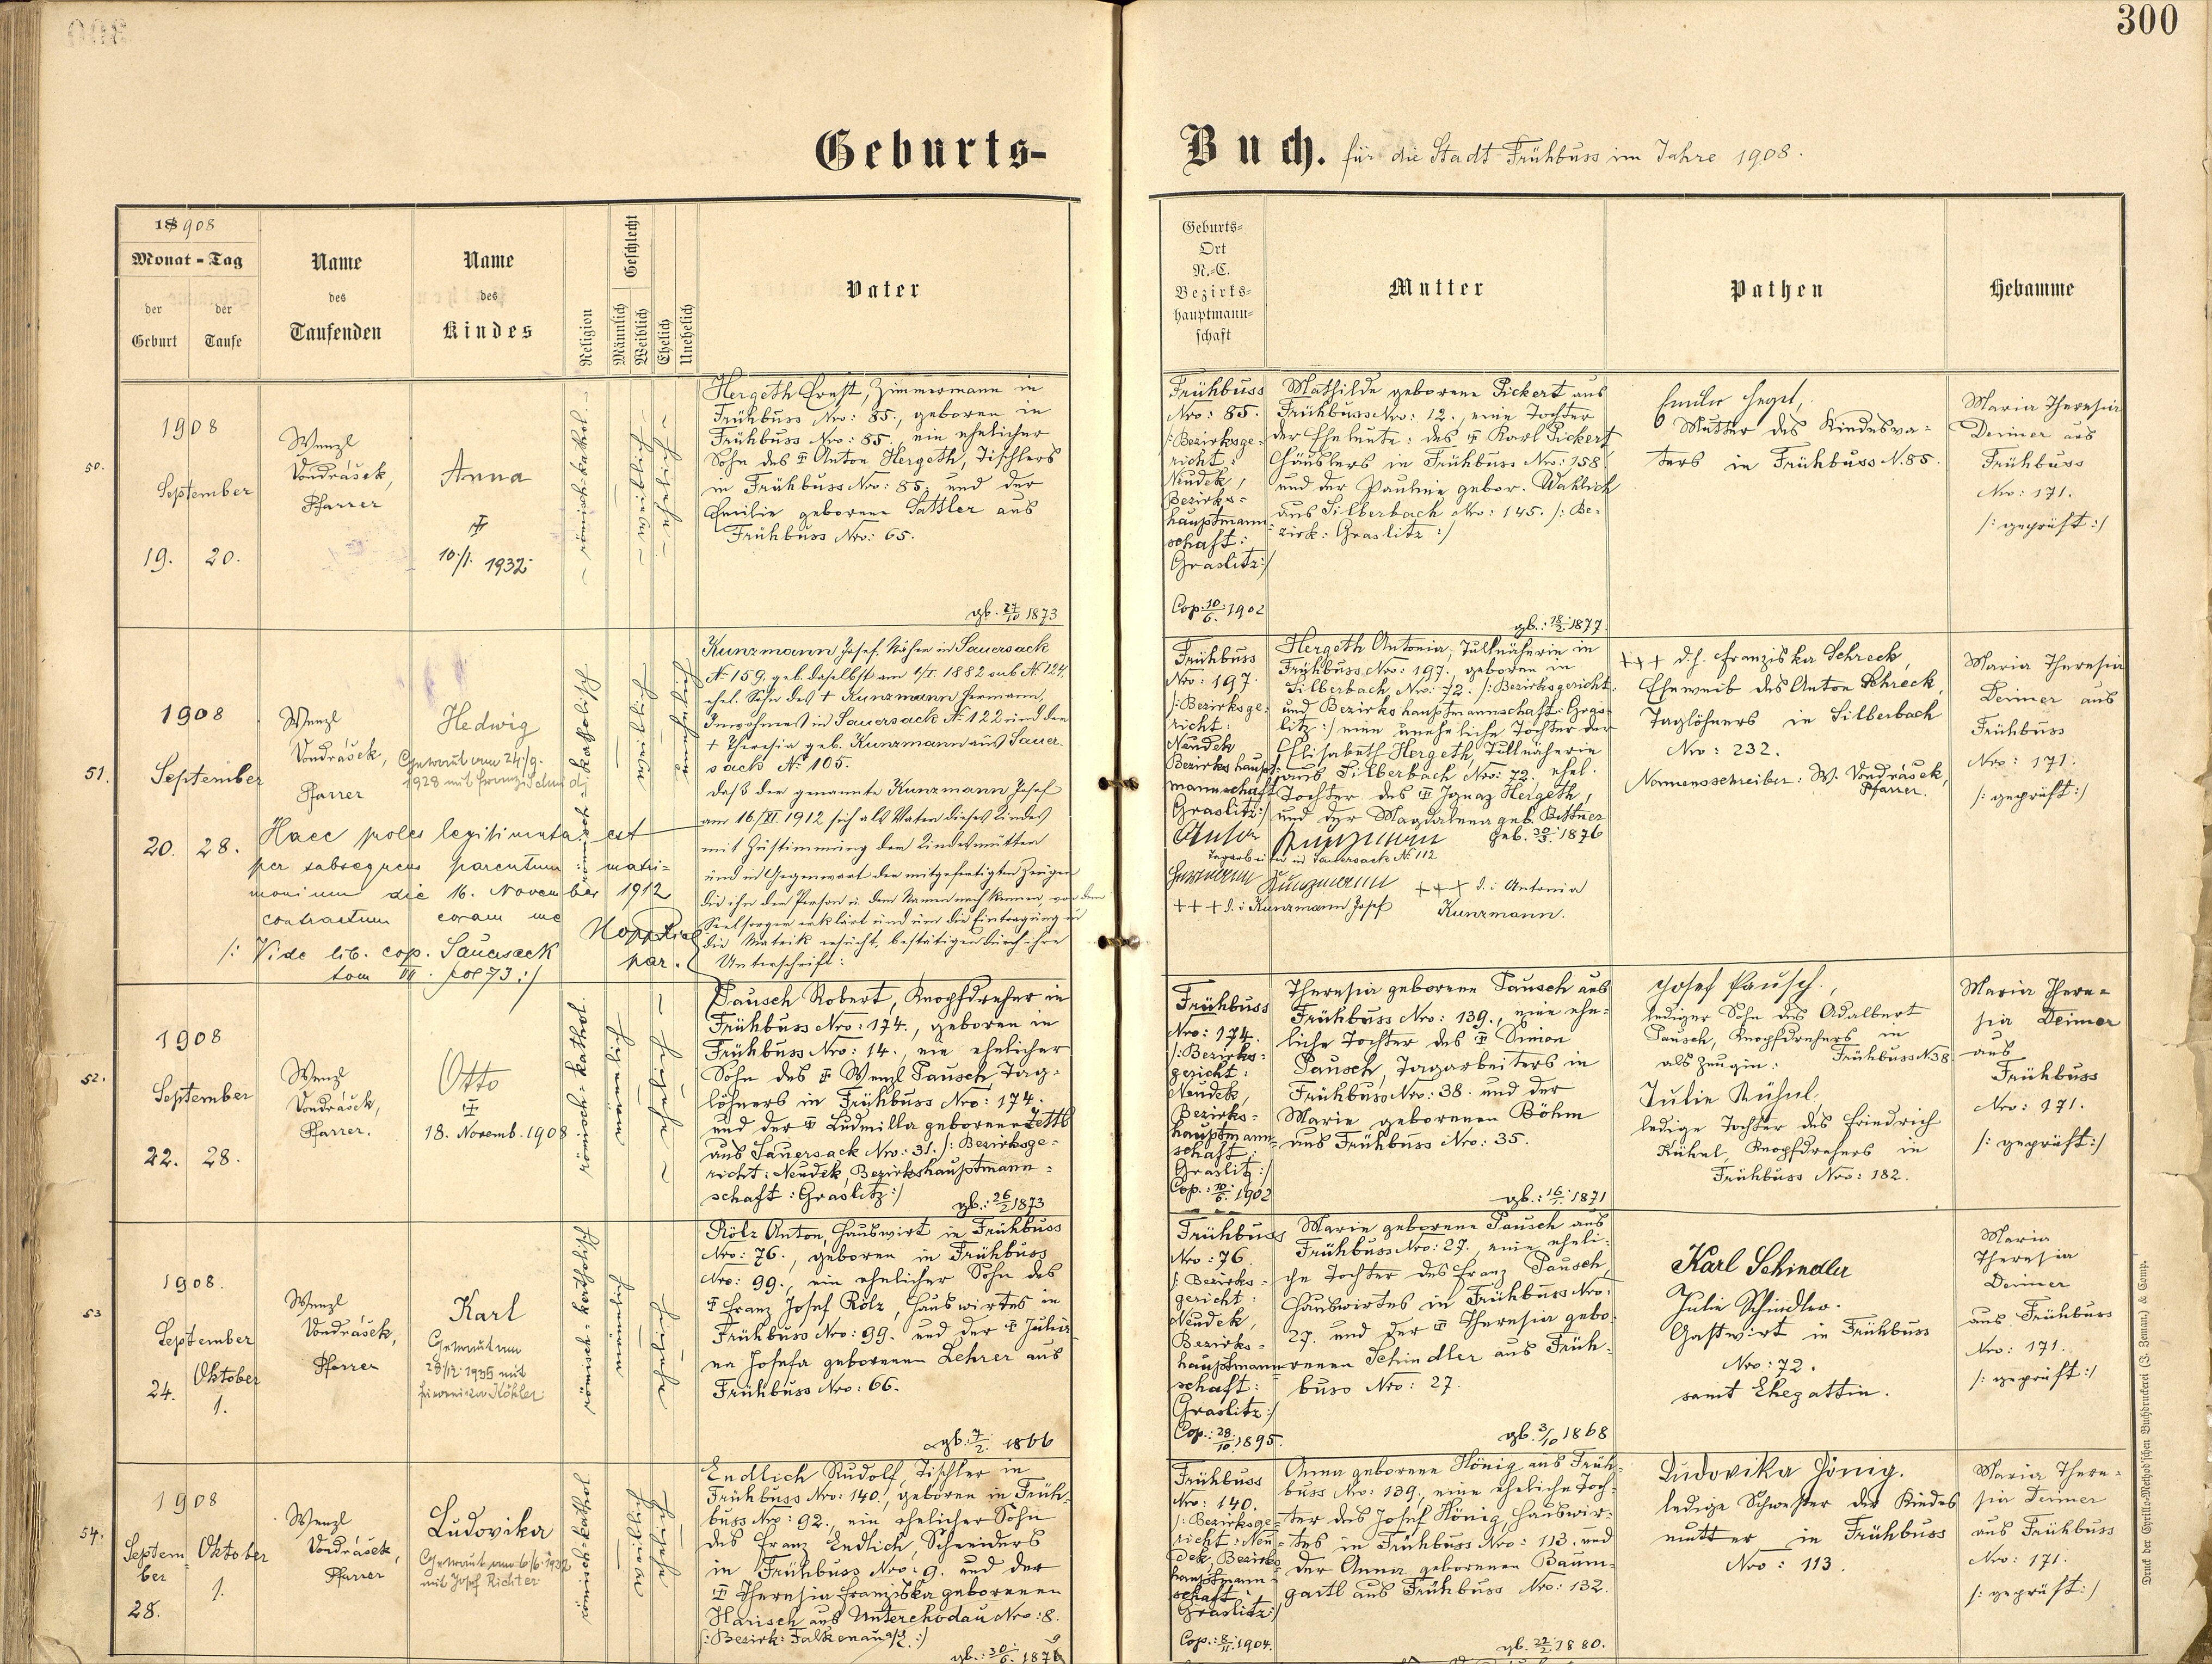 300
Geburts-
Buch. für die Stadt Frühbuss im Jahre 1908.
18 908
Monat-Tag
der Geburt
der Taufe
Name
des
Taufenden
Name
des
Kindes
Religion
Geschlecht
Männlich
Weiblich
Ehelich
Unehelich
Vater
Geburts-
Ort
N.-C.
Bezirks-
hauptmann-
schaft
Mutter
Pathen
Hebamme
50.
1908
September
19. 20.
Wenzl
Vondrášek,
Pfarrer
Anna
10./1. 1932.
römisch-kathol.
Hergeth Ernst, Zimmermann in
Frühbuss Nro: 85., geboren in
Frühbuss Nro: 85., ein ehelicher
Sohn des Anton Hergeth, Tischlers
in Frühbuss Nro: 85. und der
Emilie geborene Sattler aus
Frühbuss Nro: 65.
gb. 27/10 1873
Frühbuss
Nro: 85.
/: Bezirksge-
richt:
Neudek,
Bezirks-
hauptmann-
schaft:
Graslitz:/
Cop: 10/6. 1902
Mathilde geborene Pickert aus
Frühbuss Nro: 12., eine Tochter
der Eheleute: des Karl Pickert
Häuslers in Frühbuss Nro: 158
und der Pauline gebor. Wahlich
aus Silberbach Nro: 145. /: Be-
zirk: Graslitz :/
gb.: 18/2. 1877.
Mutter des Kindesva-
ters in Frühbuss N. 85.
Maria Theresia
Deimer aus
Frühbuss
Nro: 171.
/: geprüft :/
51.
1908
September
20. 28.
Wenzl
Vondrášek,
Pfarrer
Hedwig
Getraut am 24./9.
1928 mit Franz Schmid
römisch-katholisch
Haec proles legitimata est
per subsequens parentum matri-
monium die 16. November 1912
contractum coram me
par.
/: Vide lib. cop. Sauersack
tom VII. fol 73 :/
Kunzmann Josef, Näher in Sauersack
N. 159, geb. daselbst am 1/I. 1882 sub N. 124,
ehel. Sohn des + Kunzmann Hermann,
Inwohners in Sauersack N. 122 und der
+ Theresia geb. Kunzmann aus Sauer-
sack N. 105.
Daß der genannte Kunzmann Josef
am 16/XI. 1912 sich als Vater dieses Kindes
mit Zustimmung der Kindesmutter
und in Gegenwart der mitgefertigten Zeugen
die ihn der Person u. dem Namen nach kennen, vor dem
Seelsorger erklärt und um die Eintragung in
die Matrik ersucht, bestätigen durch ihre
Unterschrift:
Frühbuss
Nro: 197.
/: Bezirksge-
richt:
Neudek
Bezirkshaupt-
mannschaft
Graslitz:/
Hergeth Antonia, Tüllnäherin in
Frühbuss Nro: 197., geboren in
Silberbach Nro: 72. /: Bezirksgericht
und Bezirkshauptmannschaft: Gras-
litz :/ eine uneheliche Tochter der
Elisabeth Hergeth, Tüllnäherin
aus Silberbach Nro: 72., ehel.
Tochter des Ignaz Hergeth,
und der Magdalena geb. Bittner
geb. 30/3. 1876
Anton Kunzmann
Tagarbeiter in Sauersack N. 112
Hermann Kunzmann
+++ d. i. Kunzmann Josef
+++ d. i. Antonia
Kunzmann.
+++ d. h. Franziska Schreck,
Eheweib des Anton Schreck,
Taglöhners in Silberbach
Nro: 232.
Namensschreiber: W. Vondrášek,
Pfarrer.
Maria Theresia
Deimer aus
Frühbuss
Nro: 171.
/: geprüft :/
52.
1908
September
22. 28.
Wenzl
Vondrášek,
Pfarrer.
Otto
18. Novemb. 1908
römisch-kathol.
Pausch Robert, Knopfdreher in
Frühbuss Nro: 174., geboren in
Frühbuss Nro: 14., ein ehelicher
Sohn des Wenzl Pausch, Tag-
löhners in Frühbuss Nro: 174.
und der Ludmilla geborenen Zettl
aus Sauersack Nro: 31. /: Bezirksge-
richt: Neudek, Bezirkshauptmann-
schaft: Graslitz:/
gb.: 26/2 1873
Frühbuss
Nro: 174.
/: Bezirks-
gericht:
Neudek,
Bezirks-
hauptmann-
schaft:
Graslitz:/
Cop.: 10/6. 1902
Theresia geborene Pausch aus
Frühbuss Nro: 139., eine ehe-
liche Tochter des Simon
Pausch, Tagarbeiters in
Frühbuss Nro: 38. und der
Marie geborenen Böhm
aus Frühbuss Nro: 35.
gb.: 16/1. 1871
Josef Pausch.,
lediger Sohn des Adalbert
Pausch, Knopfdrehers in
Frühbuss N. 38.
als Zeugin:
Julie Kühnl,
ledige Tochter des Friedrich
Kühnl, Knopfdrehers in
Frühbuss Nro: 182.
Maria There-
sia Deimer
aus
Frühbuss
Nro: 171.
/: geprüft :/
53
1908.
September
24.
Oktober
1.
Wenzl
Vondrášek,
Pfarrer
Karl
Getraut am
28/12. 1935 mit
Köhler.
römisch-katholisch
Rölz Anton, Hauswirt in Frühbuss
Nro: 76., geboren in Frühbuss
Nro: 99., ein ehelicher Sohn des
Franz Josef Rölz, Hauswirtes in
Frühbuss Nro: 99. und der Julia-
na Josefa geborenen Lehrer aus
Frühbuss Nro: 66.
gb.: 7/2. 1866
Frühbuss
Nro: 76.
/: Bezirks-
gericht:
Neudek,
Bezirks-
hauptmann-
schaft:
Graslitz:/
Cop.: 28/10. 1895.
Marie geborene Pausch aus
Frühbuss Nro: 27., eine eheli-
che Tochter des Franz Pausch,
Hauswirtes in Frühbuss Nro:
27. und der Theresia gebo-
renen Schindler aus Früh-
buss Nro: 27.
gb. 3/10 1868
Karl Schindler
Julie Schindler.
Gastwirt in Frühbuss
Nro: 72.
samt Ehegattin.
Maria
Theresia
Deimer
aus Frühbuss
Nro: 171.
/: geprüft :/
54.
1908
Septem-
ber
28.
Oktober
1.
Wenzl
Vondrášek,
Pfarrer
Ludovika
Getraut am 6./6. 1932
mit Josef Richter
römisch-kathol
Endlich Rudolf, Tischler in
Frühbuss Nro: 140., geboren in Früh-
buss Nro: 92., ein ehelicher Sohn
des Franz Endlich, Schneiders
in Frühbuss Nro: 9. und der
Theresia Franziska geborenen
Harisch aus Unterchodau Nro: 8.
/: Bezirk: Falkenau a/d. :/
gb.: 30/6. 187
Frühbuss
Nro: 140.
/: Bezirksge-
richt: Neu-
dek, Bezirks-
hauptmann-
schaft
Graslitz:/
Cop.: 8/11. 1904.
Anna geborene König aus Früh-
buss Nro: 139., eine eheliche Toch-
ter des Josef König, Hauswir-
tes in Frühbuss Nro: 113. und
der Anna geborenen Baum-
gartl aus Frühbuss Nro: 132.
gb. 27/2. 1880.
Ludovika König.
ledige Schwester der Kindes
mutter in Frühbuss
Nro: 113.
Maria There-
sia Deimer
aus Frühbuss
Nro: 171.
/: geprüft :/
Druck der Cyrillo-Method'schen Buchdruckerei (J. Zeman) & Comp.